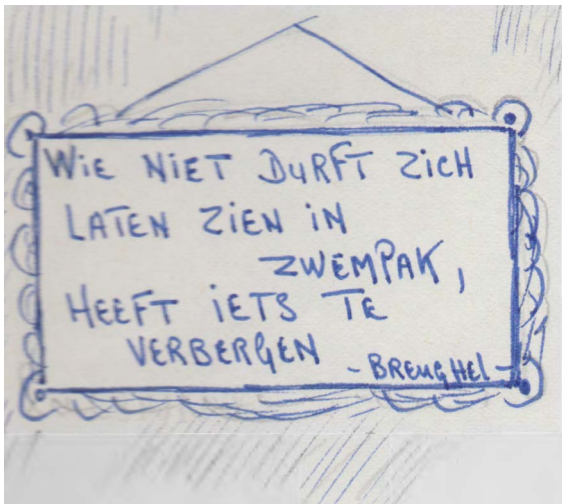 WiE NiET DURFT ZiCH
LATEN ZiEN iN
ZWEMPAK,
HEEFT iETS TE
VERBERGEN
- BREUGHEL -